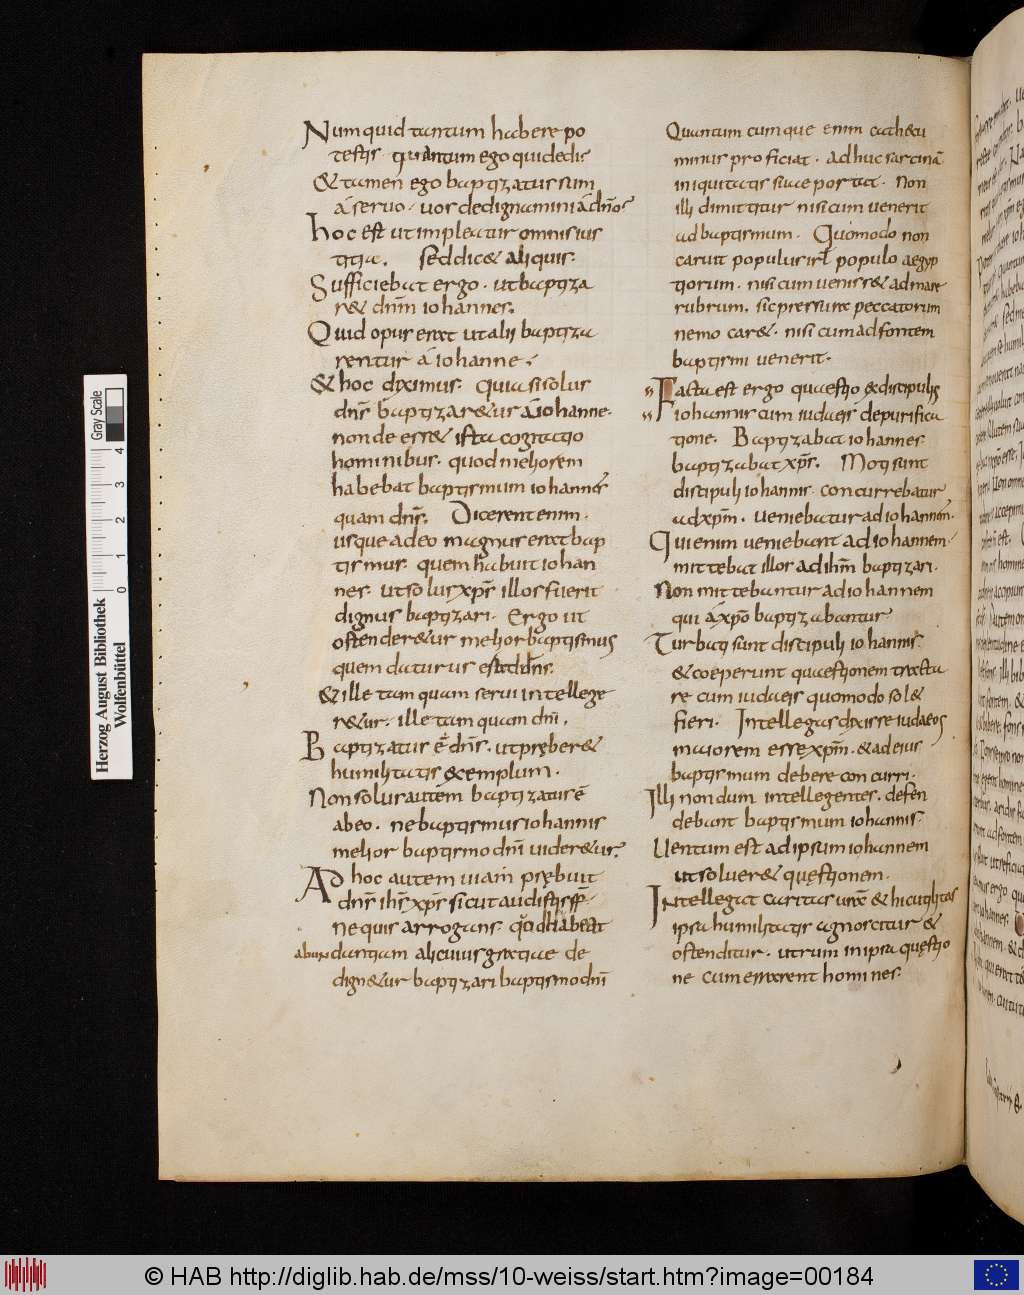 Numquid tantum habere po
testis· quantum ego qui dedi:
& tamen ego baptizatus sum
a servo· vos dedignamini a dño?
hoc est ut impleatur omnis ius
titia. Sed dic& aliquis·
Sufficiebat ergo· ut baptiza
r& dnm iohannes·
Quid opus erat ut alii baptiza
rentur a iohanne·
& hoc diximus· quia si solus
dns baptizar&ur a iohanne·
non de ess& ista cogitatio
hominibus· quod meliorem
habebat baptismum iohannes
quam dns· Dicerent enim·
usque adeo magnus erat bap
tismus· quem habuit iohan
nes· ut solus xps illo fuerit
dignus baptizari· Ergo ut
ostender&ur melior baptismus
quem daturus est dns·
& ille tam quam servi intellege
r&ur· ille tam quam dni·
Baptizatus e dns· ut prebere&
humilitatis exemplum·
Non solus autem baptizatus e
ab eo· ne baptismus iohannis
melior baptismo dni vider&ur·
Ad hoc autem viam prebuit
dns ihs xps sicut audistis fr·
ne quis arrogans· quod habeat
abundantiam alicuius gratiae de
dign&ur baptizari baptismo dni
Quantum cumque enim cathecu
minus proficiat· adhuc sarcinã
iniquitatis suae portat· non
illi dimittitur nisi cum venerit
ad baptismum· Quomodo non
caruit populus irl populo aegyp
tiorum· nisi cum veniss& ad mare
rubrum· sic pressura peccatorum
nemo car&· nisi cum ad fontem
baptismi venerit·
Facta est ergo quaestio ex discipulis
iohannis cum iudaeis de purifica
tione· Baptizabat iohannes·
baptizabat xps· Moti sunt
discipuli iohannis· concurrebatur
ad xpm· veniebatur ad iohannem·
Qui enim veniebant ad iohannem·
mittebat illos ad ihm baptizari·
Non mittebantur ad iohannem
qui a xpo baptizabantur
Turbati sunt discipuli iohannis·
& coeperunt quaestionem tracta
re cum iudaeis quomodo sol&
fieri· Intellegas dixisse iudaeos
maiorem esse xpm· & ad eius
baptismum debere concurri·
Illi nondum intellegentes· defen
debant baptismum iohannis·
Ventum est ad ipsum iohannem
ut solver& questionem·
Intellegat caritas vra & hic utilitas
ipsa humilitatis agnoscitur &
ostenditur· utrum in ipsa questio
ne cum errarent homines·
Herzog August Bibliothek
Wolfenbüttel
0 1 2 3 4
Gray Scale
© HAB http://diglib.hab.de/mss/10-weiss/start.htm?image=00184